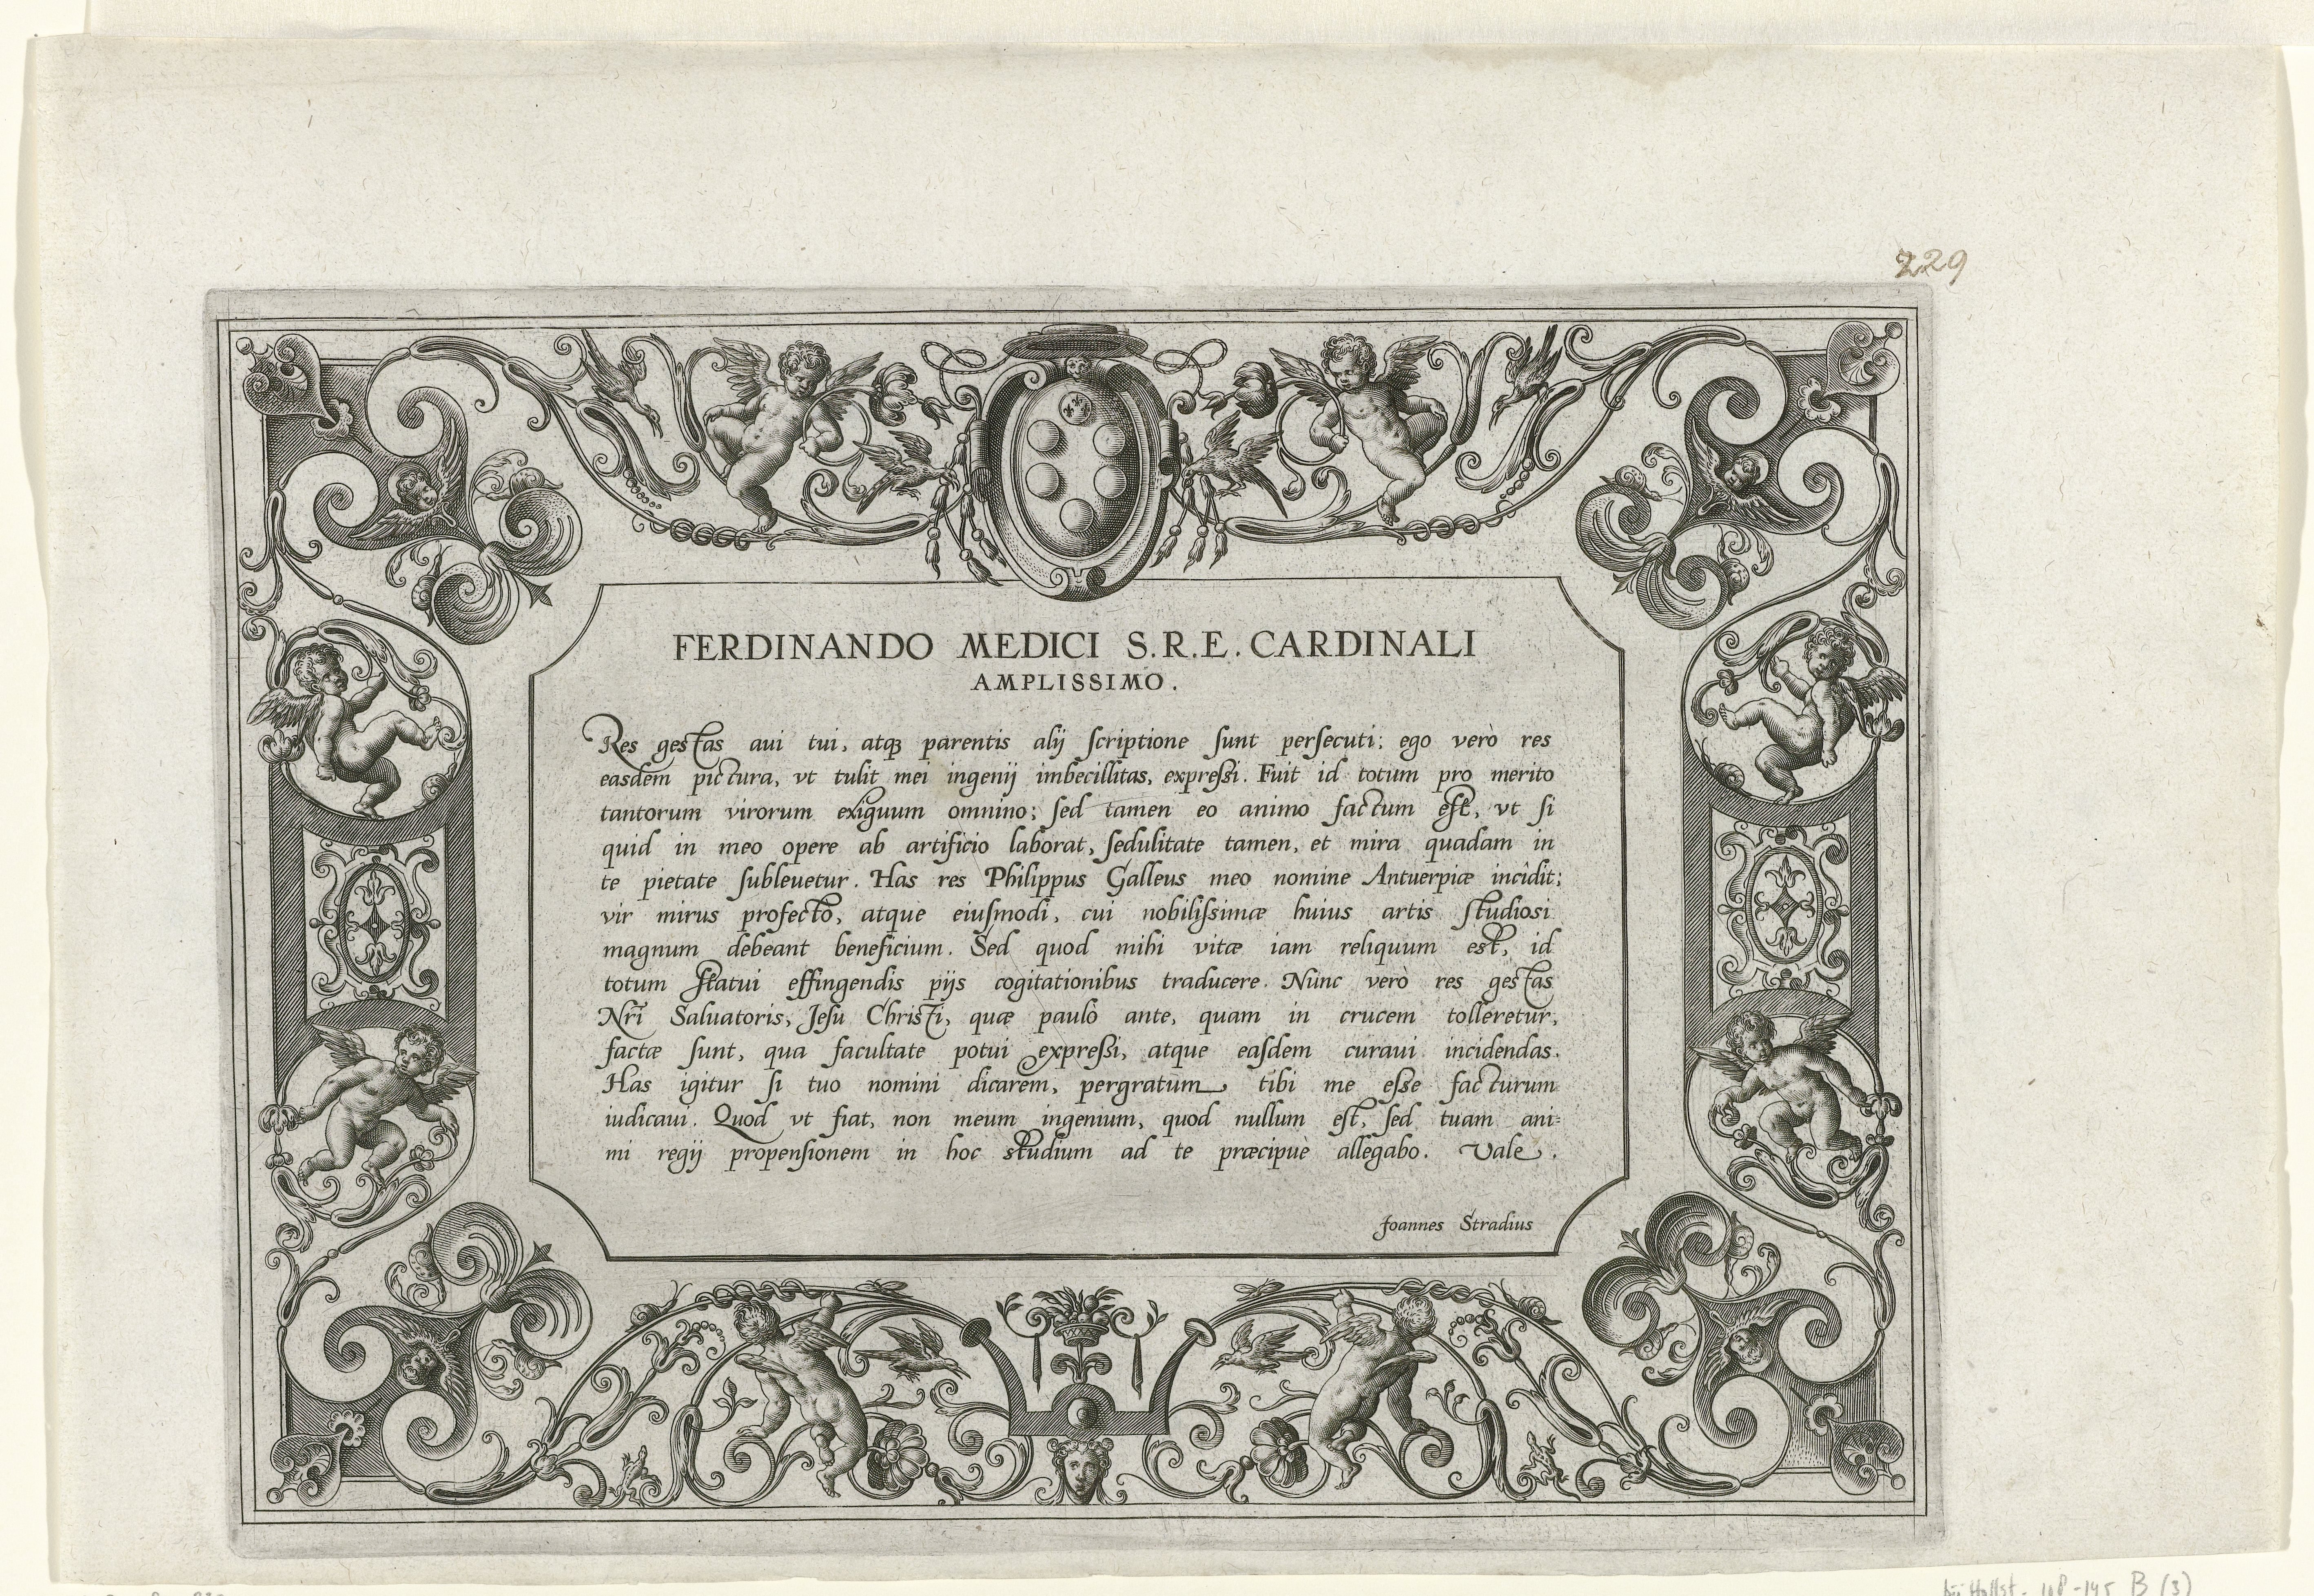 229
FERDINANDO MEDICI S.R.E. CARDINALI
AMPLISSIMO.
Res gestas aui tui, atq₃ parentis alij ſcriptione ſunt perſecuti; ego verò res
easdem pictura, vt tulit mei ingenij imbecillitas, expreſsi. Fuit id totum pro merito
tantorum virorum exiguum omnino; ſed tamen eo animo factum eſt, vt ſi
quid in meo opere ab artificio laborat, ſedulitate tamen, et mira quadam in
te pietate ſubleuetur. Has res Philippus Galleus meo nomine Antuerpiæ incidit;
vir mirus profecto, atque eiuſmodi, cui nobiliſsimæ huius artis ſtudiosi
magnum debeant beneficium. Sed quod mihi vitæ iam reliquum est, id
totum ſtatui effingendis pijs cogitationibus traducere. Nunc verò res gestas
Nr̃i Saluatoris, Jeſu Christi, quæ paulò ante, quam in crucem tolleretur,
factæ ſunt, qua facultate potui expreſsi, atque eaſdem curaui incidendas.
Has igitur ſi tuo nomini dicarem, pergratum tibi me eſse facturum
iudicaui. Quod vt fiat, non meum ingenium, quod nullum eſt, ſed tuam ani=
mi regij propenſionem in hoc studium ad te præcipuè allegabo. Vale.
Joannes Stradius
B (3)